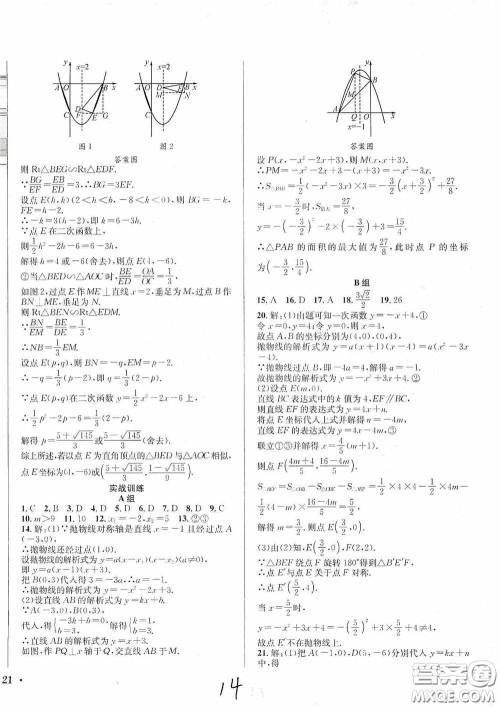 图1
图2
答案图
则 Rt△BEG∽Rt△EDF.
∴BG/EF=EB/ED=3,∴BG=3EF.
设点 E(h,k)(2<h<6,-8<k<0),则 BG=-k,
FE=h-2.
∴-k=3(h-2),即 k=6-3h.
∵点 E 在二次函数上,
则1/2h²-2h-6=6-3h.
解得 h=4 或-6(舍去).
则点 E(4,-6).
②当△BED∽△AOC 时,BE/DE=OA/OC=1/3.
如图2,过点 E 作 ME⊥直线 x=2,垂足为 M,过点 B
作 BN⊥ME,垂足为 N.
则 Rt△BEN∽Rt△EDM.
∴BN/EM=BE/DE=1/3.
∴NB=1/3EM.
设点 E(p,q),则 BN=-q,EM=p-2.
∴-q=1/3(p-2),即 q=-1/3(p-2).
∵点 E(p,q)在二次函数 y=1/2x²-2x-6 上,
∴1/2p²-2p-6=-1/3(p-2).
解得 p=(5+√145)/3或(5-√145)/3(舍去).
综上所述,若以点 E 为直角顶点的△BED 与△AOC 相似,
点 E 坐标为(4,-6)或((5+√145)/3,(1-√145)/9).
实战训练
A 组
1. C 2. D 3. D 4. D 5. C 6. D 7. D 8. C 9. C
10. m>9 11. 10 12. x₁=-2,x₂=5 13. ②③
14. 解:(1)∵抛物线对称轴是直线 x=-1 且经过点 A
(-3,0),
∴抛物线还经过点(1,0).
设抛物线的解析式为 y=a(x-x₁)(x-x₂)(a≠0),
即 y=a(x-1)(x+3).
把 B(0,3)代入得 3=-3a,∴a=-1.
∴抛物线的解析式为 y=-x²-2x+3.
(2)设直线 AB 的解析式为 y=kx+b,
∵A(-3,0),B(0,3),
代入,得{-3k+b=0,b=3.解得{k=1,b=3.
∴直线 AB 的解析式为 y=x+3.
如图,作 PQ⊥x 轴于 Q,交直线 AB 于 M.
答案图
设 P(x,-x²-2x+3),则 M(x,x+3).
∴PM=-x²-2x+3-(x+3)=-x²-3x.
∴S△PAB=1/2(-x²-3x)×3=-3/2(x+3/2)²+27/8.
当 x=-3/2时,S最大=27/8,
y=-(-3/2)²-2×(-3/2)+3=15/4.
∴△PAB 的面积的最大值为27/8,此时点 P 的坐标
为(-3/2,15/4).
B 组
15. A 16. D 17. A 18. 3√2/2 19. 26
20. 解:(1)由题可知一次函数 y=-x+4,
令 x=0,y=4,令 y=0,x=4.
故点 A、B 的坐标分别为(4,0),(0,4).
抛物线的解析式为 y=a(x+1)(x-4)=a(x²-3x-4).
∵抛物线过点 B,即-4a=4,解得 a=-1.
故抛物线的解析式为 y=-x²+3x+4.
(2)设点 E(m,-m+4).
直线 BC 表达式中的 k 值为 4,EF∥BC,
则直线 EF 的表达式为 y=4x+n.
将点 E 坐标代入上式并解得 n=4-5m.
直线 EF 的表达式为 y=4x+4-5m③.
则点 F((4m+4)/5,(16-4m)/5).
解得 m=3/2.
(3)由(2)知,E(3/2,5/2),F(2,2).
∵△BEF 绕点 F 旋转 180°得到△B′E′F,
∴点 E′与点 E 关于点 F 对称.
∴点 E′(5/2,3/2).
当 x=5/2时,
故点 E′不在抛物线上.
21. 解:(1)把 A(-1,0),D(5,-6)分别代入 y=kx+n
中,得
21
14
答案圈